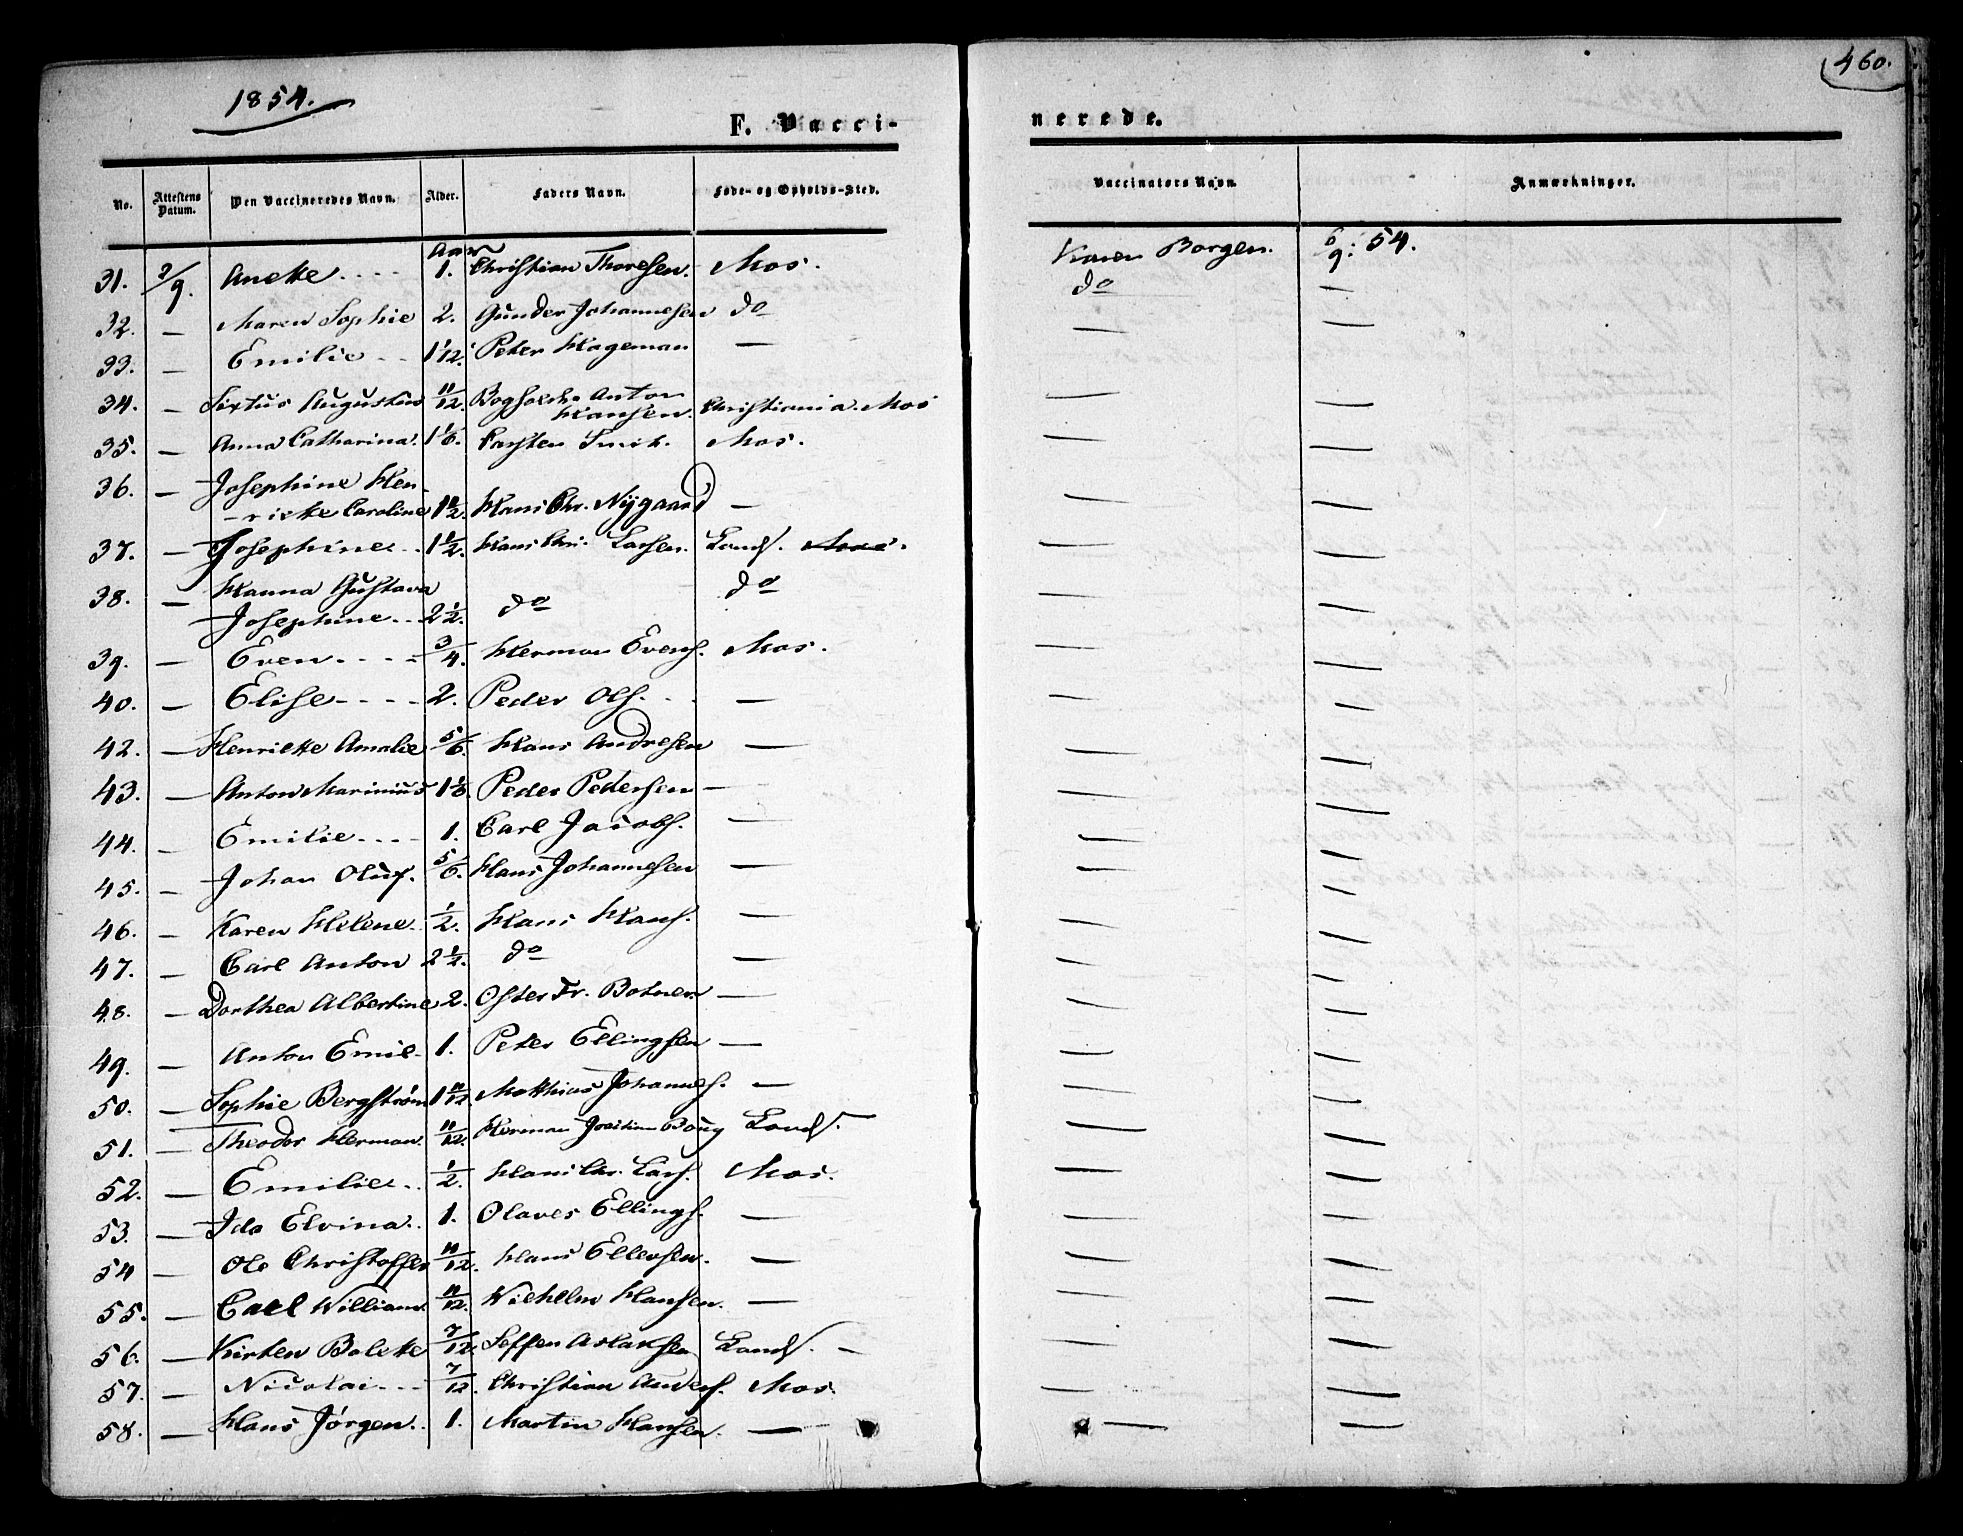 1854.
460.
F. Vacci-
nerede.
No. Attestens Datum. Den Vaccineredes Navn. Alder. Faders Navn. Føde- og Opholds-Sted. Vaccinators Navn. Anmærkninger.
Aar
31. 2/9. Anette .... 1. Christian Thoresen. Mos. Karen Borgen. 6/9: 54.
32. — Maren Sophie 2. Gunder Johannesen do do —
33. — Emilie .. 1 1/12. Peter Hageman — — —
34. — Sixtus Augustus 11/12. Bogholder Anton
Hansen. Christiania. Mos — —
35. — Anna Catharina. 1 1/6. Carsten Smit. Mos. — —
36. — Josephine Hen-
-riette Caroline 1 1/2. Hans Chr. Nygaard — — —
37. — Josephine .. 1 1/2. Hans Chr. Larsen. Lands. — —
38. — Hanna Gustava do
Josephine .. 2 1/2. do —
39. — Even .... 3/4. Herman Evens. Mos. — —
40. — Elise .... 2. Peder Ols. — — —
42. — Henriette Amalie 5/6. Hans Andresen — — —
43. — Anton Marinius 1 1/6. Peder Pedersen — — —
44. — Emilie .... 1. Carl Jacobs. — — —
45. — Johan Oluf. 5/6. Hans Johannesen — — —
46. — Karen Helene. 1/2. Hans Hans. — — —
47. — Carl Anton 2 1/2. do — — —
48. — Dorthea Albertine 2. Fr. Botner — — —
49. — Anton Emil 1. Peter Ellingsen — — —
50. — Sophie Bergstrøm 1 11/12. Matthias Johannes. — — —
51. — Theodor Herman. 11/12. Herman Joachim Lands. — —
52. — Emilie .. 1/2. Hans Chr. Lars. Mos. — —
53. — Ida Elvina .. 1. Olaves Ellings. — — —
54 — Ole Christoffer 11/12. Hans Ellevsen. — — —
55. — Carl William. 11/12. Wilhelm Hansen. — — —
56. — Kirsten Bolette 7/12. Seffen Aslaksen Lands. — — —
57. — Nicolai ... 7/12. Christian Anders. Mos. — —
58. — Hans Jørgen .. 1. Martin Hansen. — — —